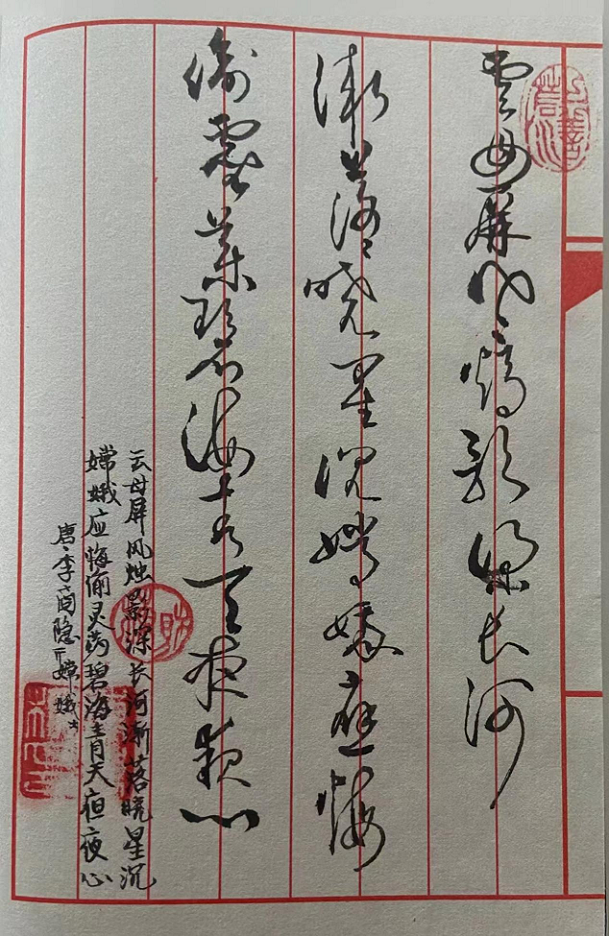 雲母屏风燭影深长河
漸落曉星沉嫦娥應悔
偷靈藥碧海青天夜夜心
云母屏风烛影深长河渐落晓星沉
嫦娥应悔偷灵药碧海青天夜夜心
唐·李商隐《嫦娥》